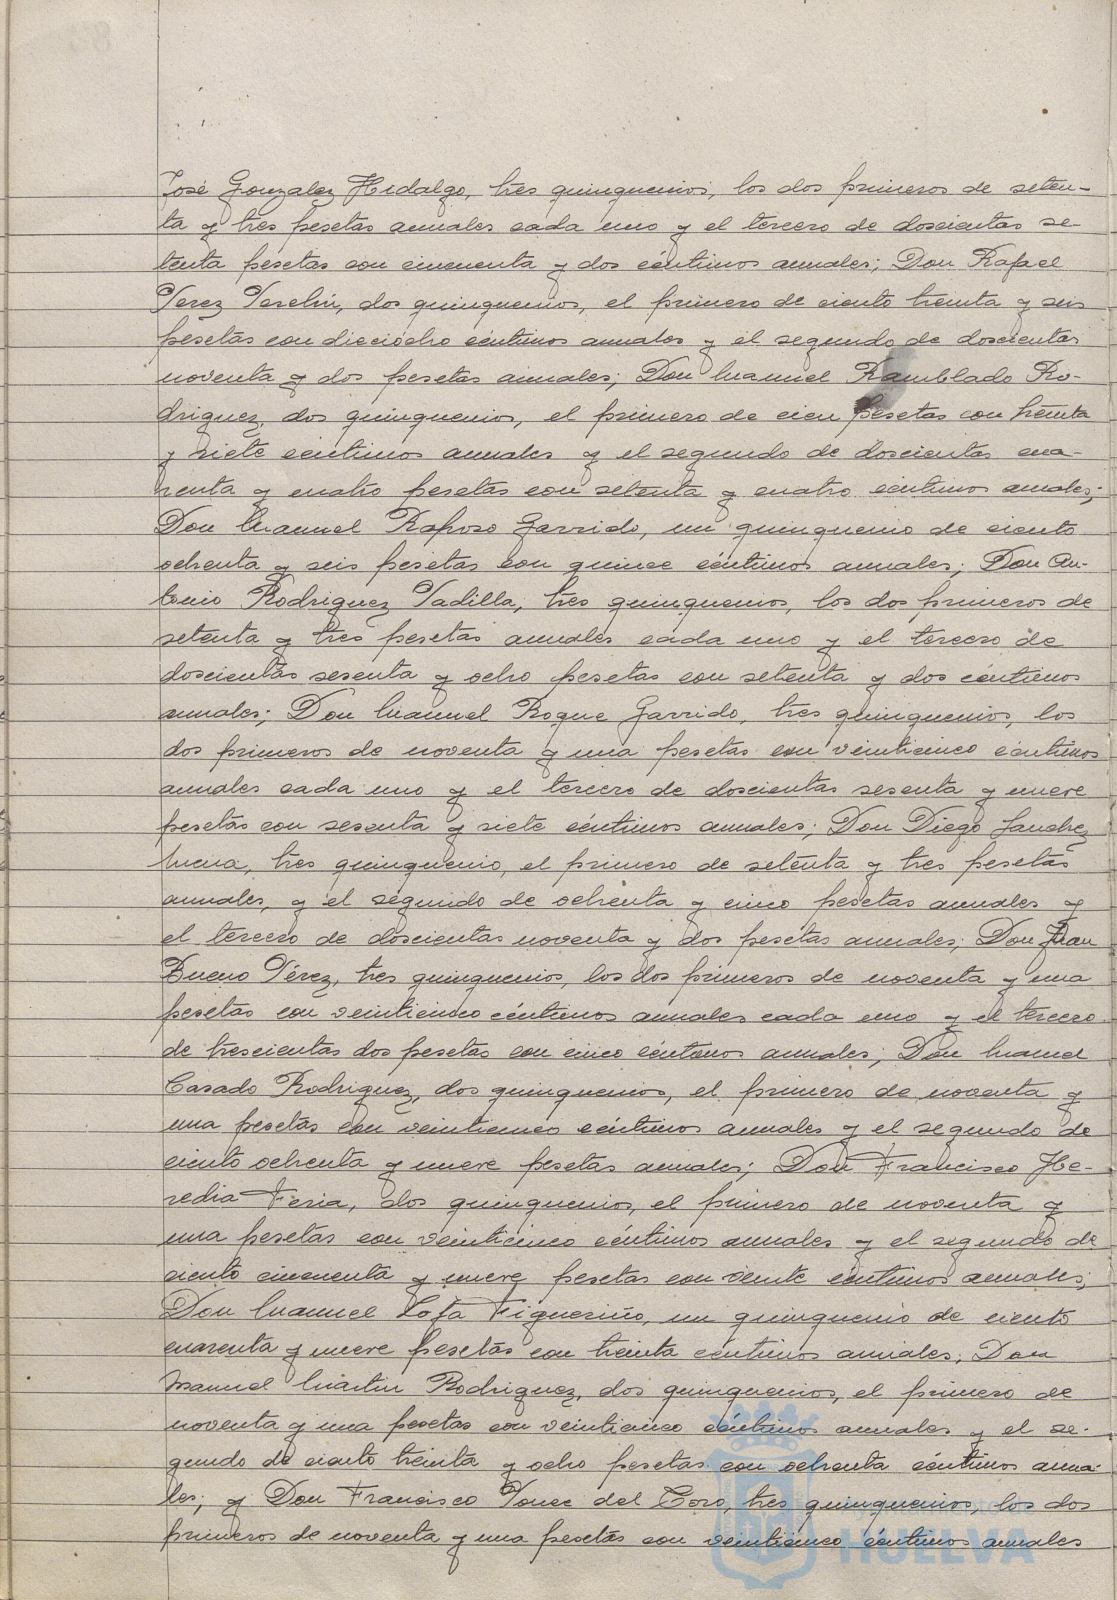 José Gonzalez Hidalgo, tres quinquenios, los dos primeros de seten-
ta y tres pesetas anuales cada uno y el tercero de doscientas se-
tenta pesetas con cincuenta y dos céntimos anuales; Don Rafael
Perez Perelin, dos quinquenios, el primero de ciento treinta y seis
pesetas con dieciócho céntimos anuales y el segundo de doscientas
noventa y dos pesetas anuales; Don Manuel Ramblado Ro-
driguez, dos quinquenios, el primero de cien pesetas con treinta
y siete centimos anuales y el segundo de doscientas cua-
renta y cuatro pesetas con setenta y cuatro céntimos anuales;
Don Manuel Raposo Garrido, un quinquenio de ciento
ochenta y seis pesetas con quince céntimos anuales; Don An-
tonio Rodriguez Padilla, tres quinquenios, los dos primeros de
setenta y tres pesetas anuales cada uno y el tercero de
doscientas sesenta y ocho pesetas con setenta y dos céntimos
anuales; Don Manuel Roque Garrido, tres quinquenios, los
dos primeros de noventa y una pesetas con veinticinco céntimos
anuales cada uno y el tercero de doscientas sesenta y nueve
pesetas con sesenta y siete céntimos anuales; Don Diego Sanchez
tres quinquenio, el primero de setenta y tres pesetas
anuales, y el segundo de ochenta y cinco pesetas anuales y
el tercero de doscientas noventa y dos pesetas anuales; Don Juan
Bueno Pérez, tres quinquenios, los dos primeros de noventa y una
pesetas con veinticinco céntimos anuales cada uno y el tercero
de trescientas dos pesetas con cinco céntimos anuales; Don Manuel
Casado Rodriguez, dos quinquenios, el primero de noventa y
una pesetas con veinticinco céntimos anuales y el segundo de
ciento ochenta y nueve pesetas anuales; Don Francisco He-
redia Feria, dos quinquenios, el primero de noventa y
una pesetas con veinticinco céntimos anuales y el segundo de
ciento cincuenta y nueve pesetas con veinte céntimos anuales;
Don Manuel Lofa Figueriño, un quinquenio de ciento
cuarenta y nueve pesetas con treinta céntimos anuales; Don
Manuel Martin Rodriguez, dos quinquenios, el primero de
noventa y una pesetas con veinticinco céntimos anuales y el se-
gundo de ciento treinta y ocho pesetas con ochenta céntimos anua-
les; y Don Francisco Ponce del Toro, tres quinquenios, los dos
primeros de noventa y una pesetas con veinticinco céntimos anuales
Ayuntamiento de
HUELVA